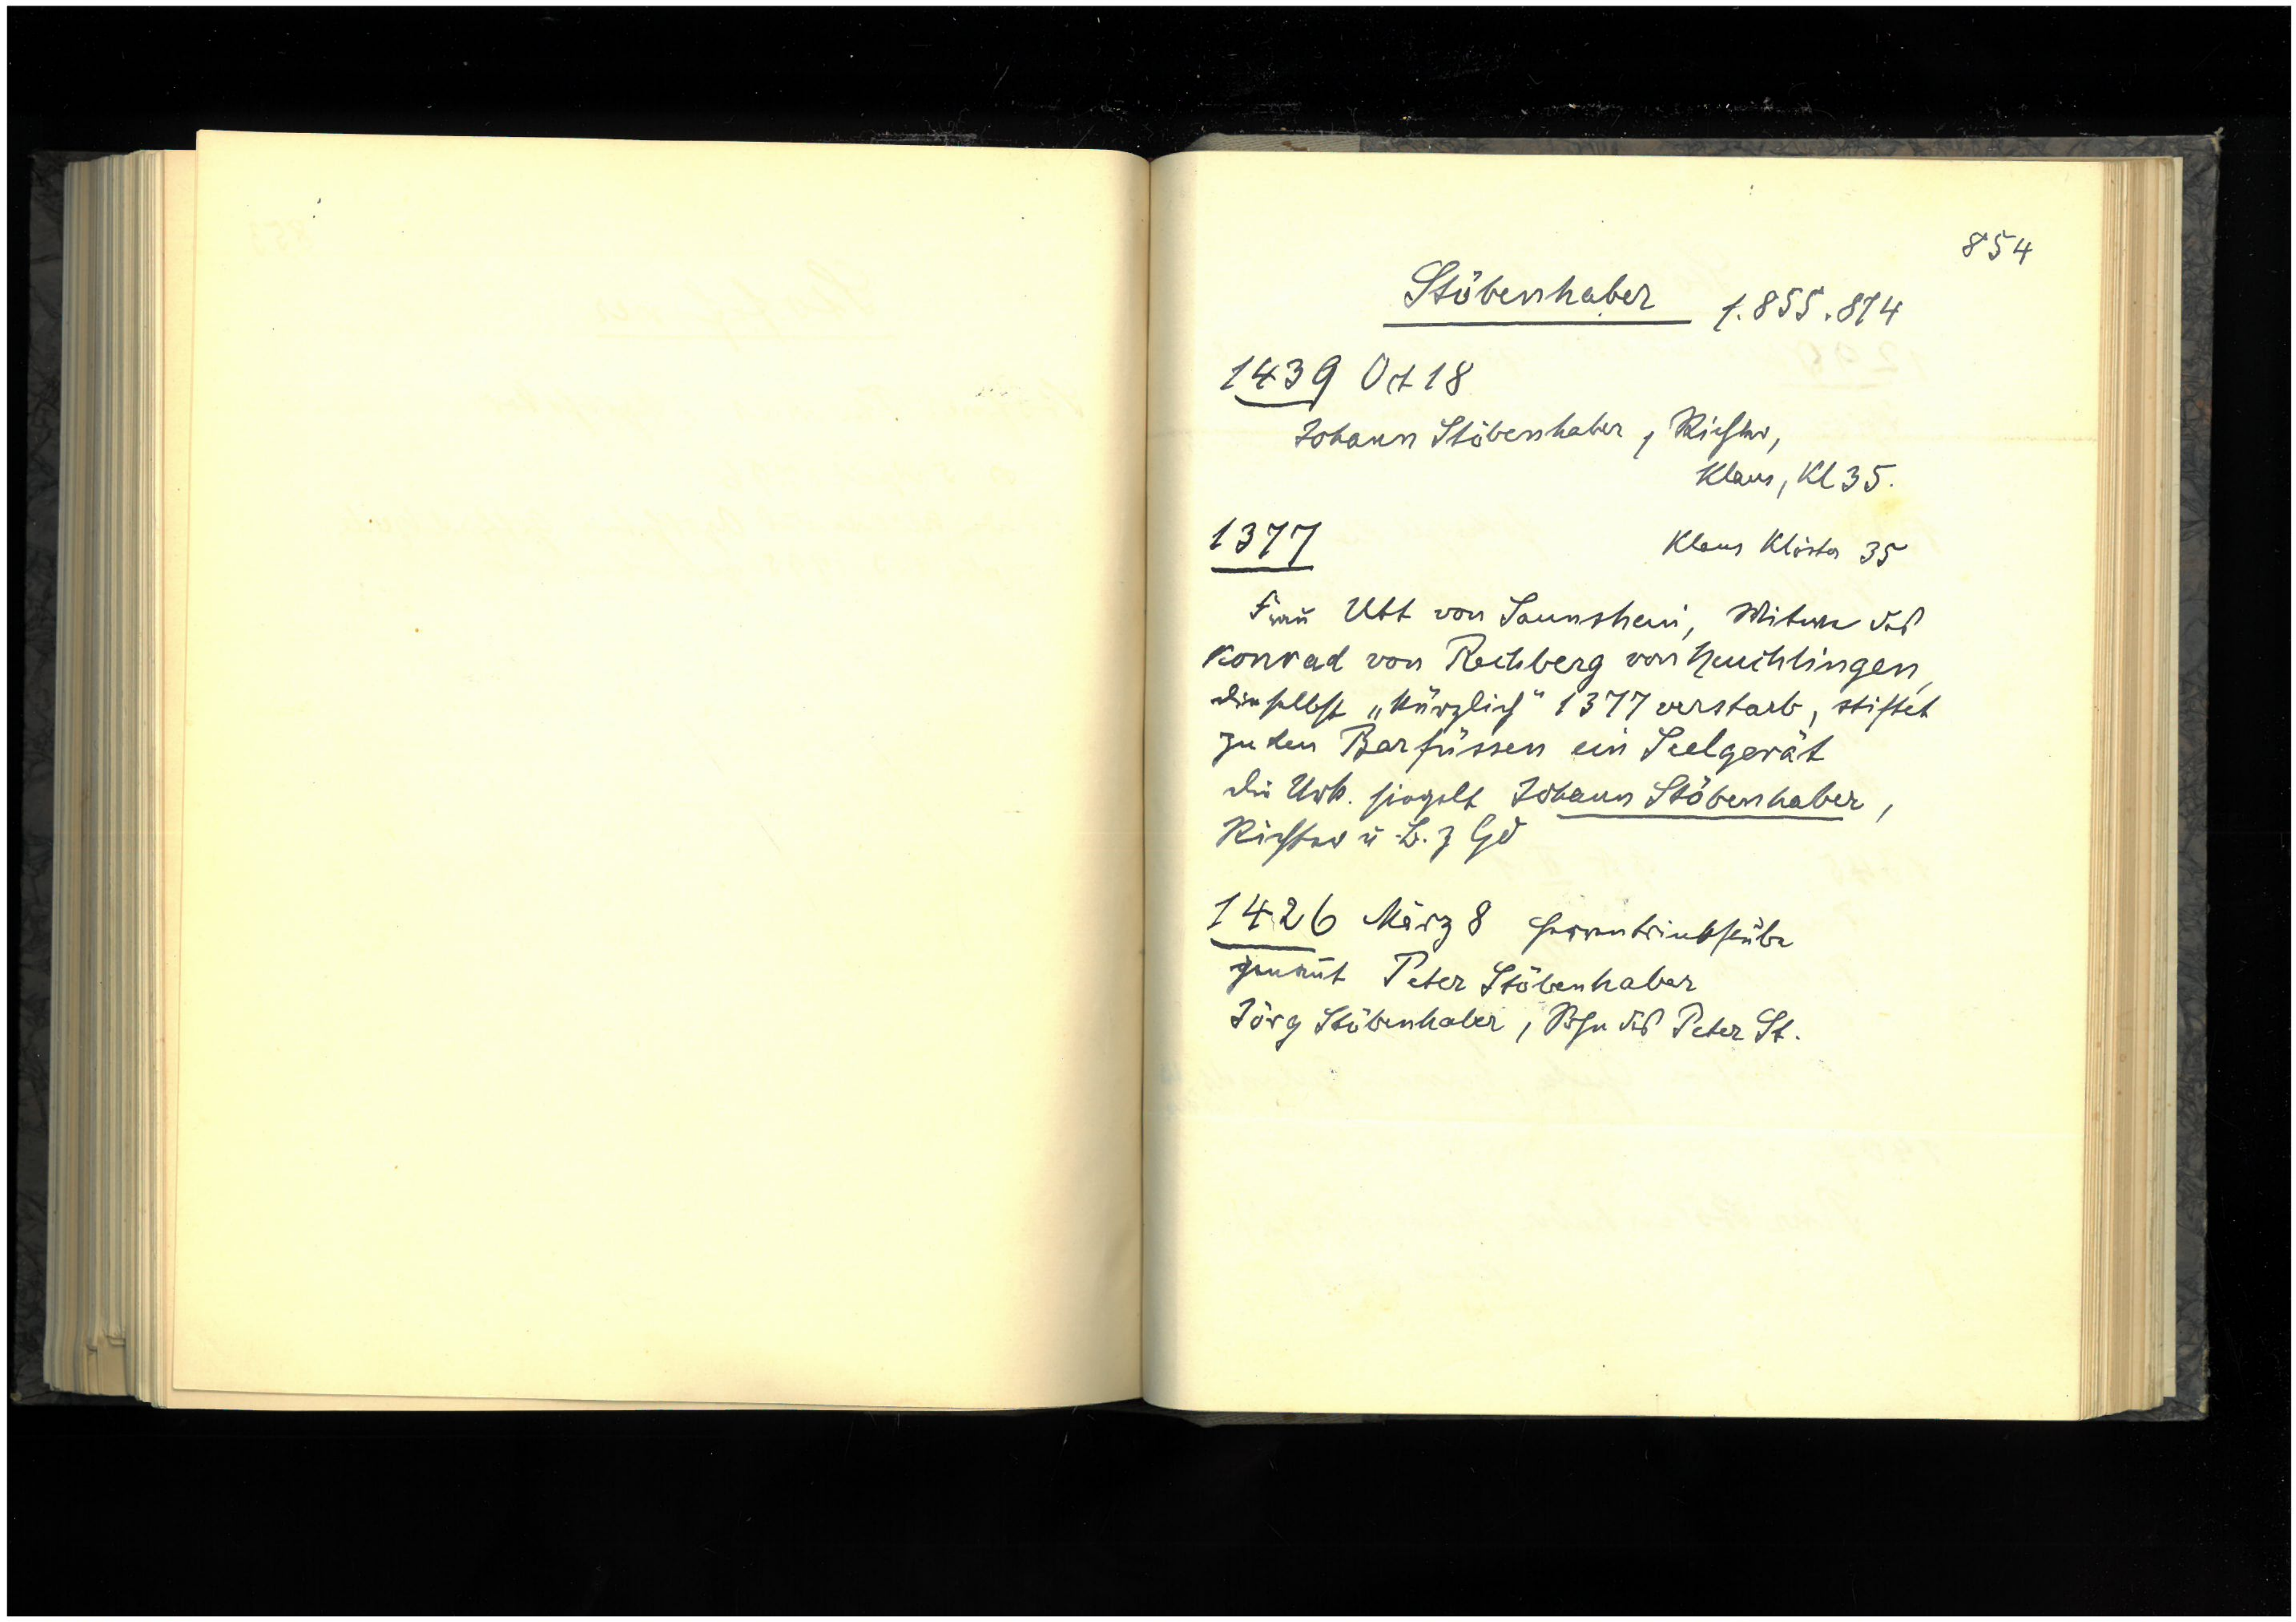 854
Stöbenhaber 1.855.874
1439 Oct 18
Johann Stöbenhaber, Richter,
Klaus, Kl 35.
1377 Klaus Klöster 35
Frau Ubt von Saunsheim, Witwe des
Konrad von Rechberg von Heuchlingen,
"kürzlich" 1377 verstarb, stiftet
zu den Barfüssen ein Seelgerät
die Urk. siegelt Johann Stöbenhaber,
Richter u. B. z Gd
1426 März 8 Herrentrinkstube
genannt Peter Stöbenhaber
Jörg Stöbenhaber, Sohn des Peter St.